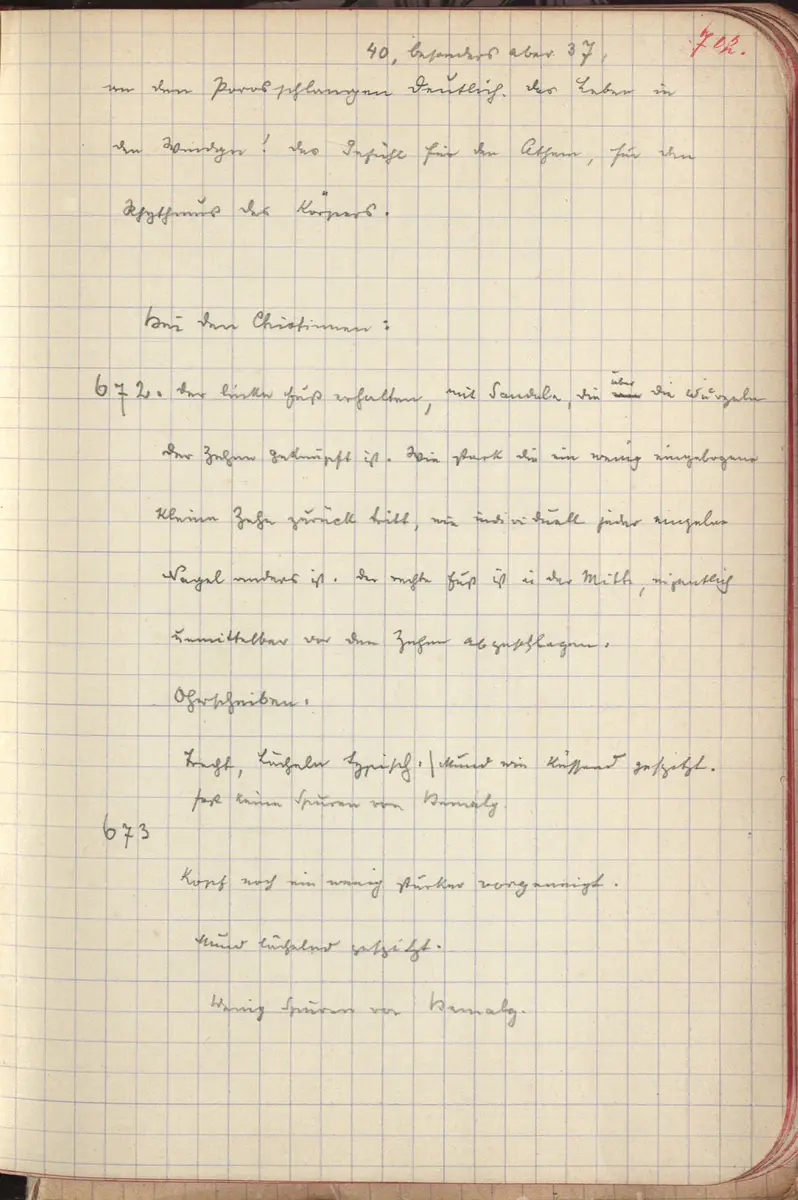 702.
40, besonders aber 37,
an den Porosschlangen deutlich. Das Leben in
den Windgn! Das Gefühl für den Athem, für den
Rhythmus des Körpers.
Bei den Chiotinnen:
672. Der linke Fuß erhalten, mit Sandale, die über die Wurzeln
der Zehen geknüpft ist. Wie stark die ein wenig eingebogene
kleine Zehe zurück tritt, wie individuell jeder einzelne
Nagel anders ist. Der rechte Fuß ist in der Mitte, eigentlich
unmittelbar vor den Zehen abgeschlagen.
Ohrscheiben.
Tracht, Lächeln typisch. | Mund wie küssend gespitzt.
fast keine Spuren von Bemalg.
673
Kopf noch ein wenig stärker vorgeneigt.
Mund lächelnd gespitzt.
Wenig Spuren von Bemalg.